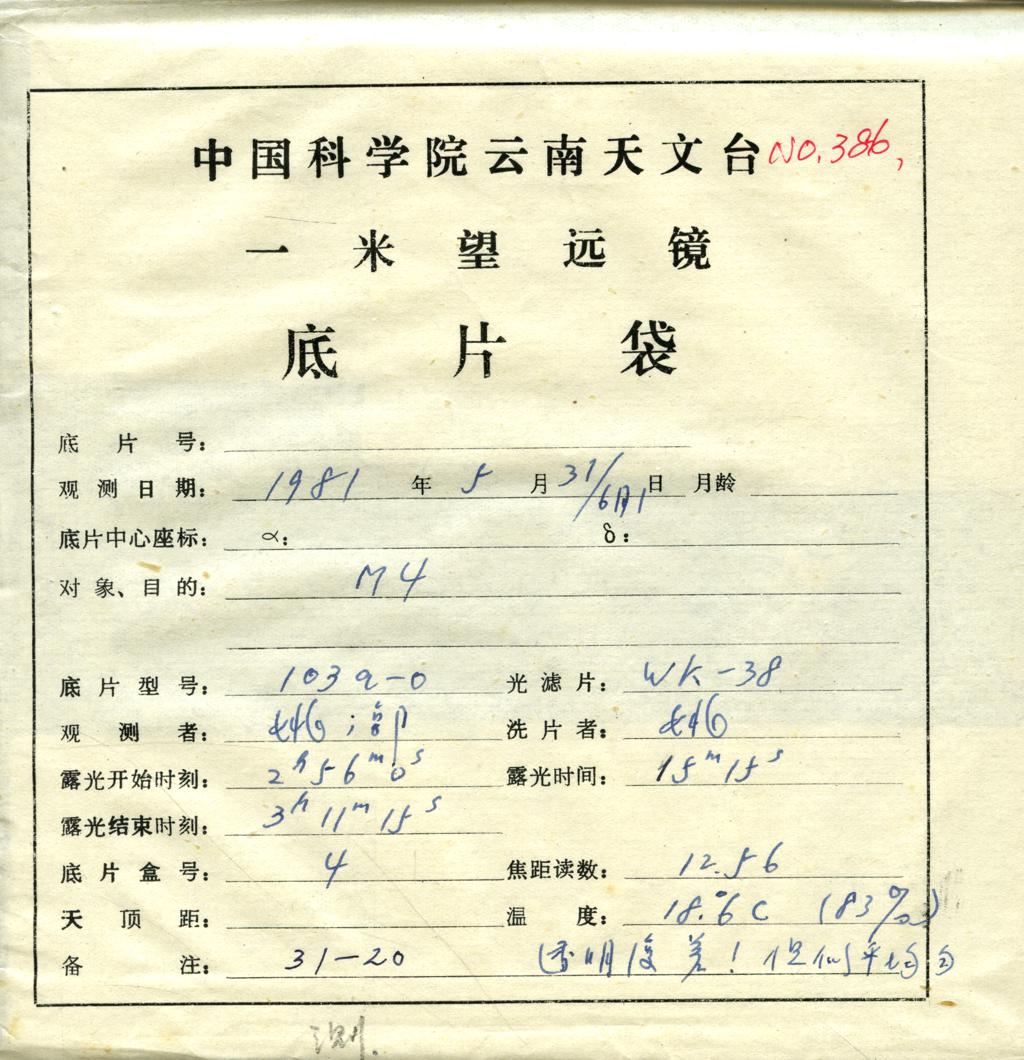 中国科学院云南天文台 NO.386,
一米望远镜
底片袋
底片号:
观测日期: 1981 年 5 月 31/6月1 日 月龄
底片中心座标: α: δ:
对象、目的: M4
底片型号: 103a-0 光滤片: WK-38
观测者: 洗片者:
露光开始时刻: 2h56m0s 露光时间: 15m15s
露光结束时刻: 3h11m15s
底片盒号: 4 焦距读数: 12.56
天顶距: 温度: 18.°6C (83%)
备注: 31-20 (透明度差!但似乎均匀)
测.